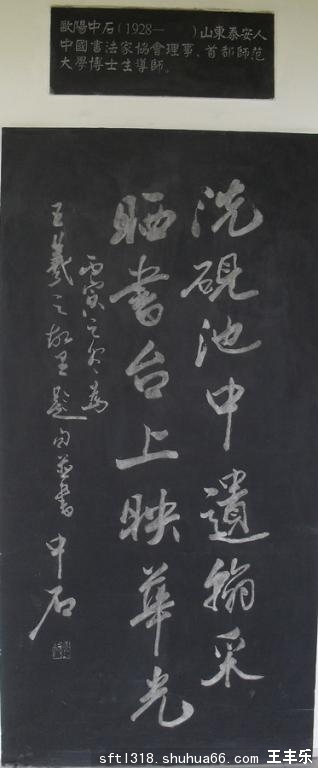 歐陽中石(1928—　　)山東泰安人
中國書法家協會理事、首都師范
大學博士生導師。
洗硯池中遺翰采
晒書台上映華光
丙寅之冬為
王羲之故里題句並書 中石
sftl318.shuhua66.com 王丰乐